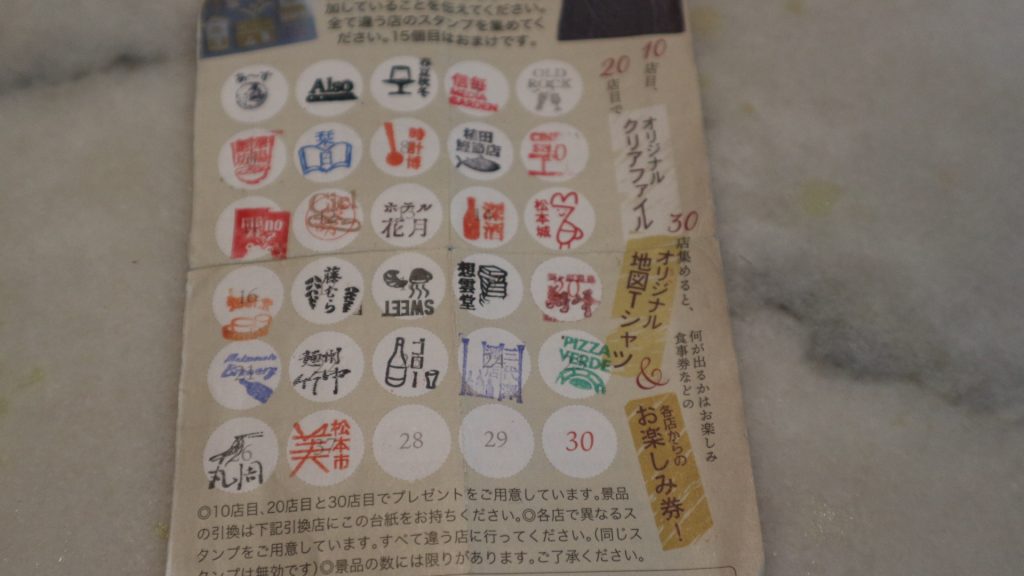 加していることを伝えてください。
全て違う店のスタンプを集めてく
ださい。15個目はおまけです。
Also
春夏秋冬
信毎
MEDIA
GARDEN
OLD
ROCK
栞
時計博
10
mano
Ciel
ホテル
花月
深酒
松本城
16
藤むら
SWEET
想雲堂
Matsumoto
麺州竹中
PIZZA
VERDE
丸周
松本市
美
28
29
30
10店目、
20店目で
オリジナル
クリアファイル
30
店集めると、
オリジナル
地図Tーシャツ
&
何が出るかはお楽しみ
食事券などの
各店からの
お楽しみ券!
◎10店目、20店目と30店目でプレゼントをご用意しています。景品
の引換は下記引換店にこの台紙をお持ちください。◎各店で異なるス
タンプをご用意しています。すべて違う店に行ってください。(同じス
タンプは無効です)◎景品の数には限りがあります。ご了承ください。